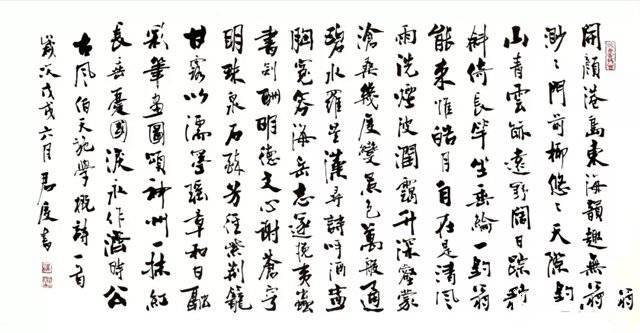 開顏港島東海韻趣無
渺渺門前柳悠悠天際釣翁
山青雲遠野闊日蹤
斜倚長竿坐垂綸一釣翁
能來惟皓月自在是清風
雨洗煙波闊靄升深壑蒙
滄桑幾度變景色萬般通
碧水羅星漢尋詩呼酒
胸寬容海岳志遠挽夷
書劍酬明德文心謝蒼穹
明珠泉石酥芳徑紫荊籠
甘露以濡墨瑤章和日融
彩筆畫圖頌神州一抹紅
長垂憂國淚永作濟時公
古風伯天說學詩一首
歲次戊戌六月君度書